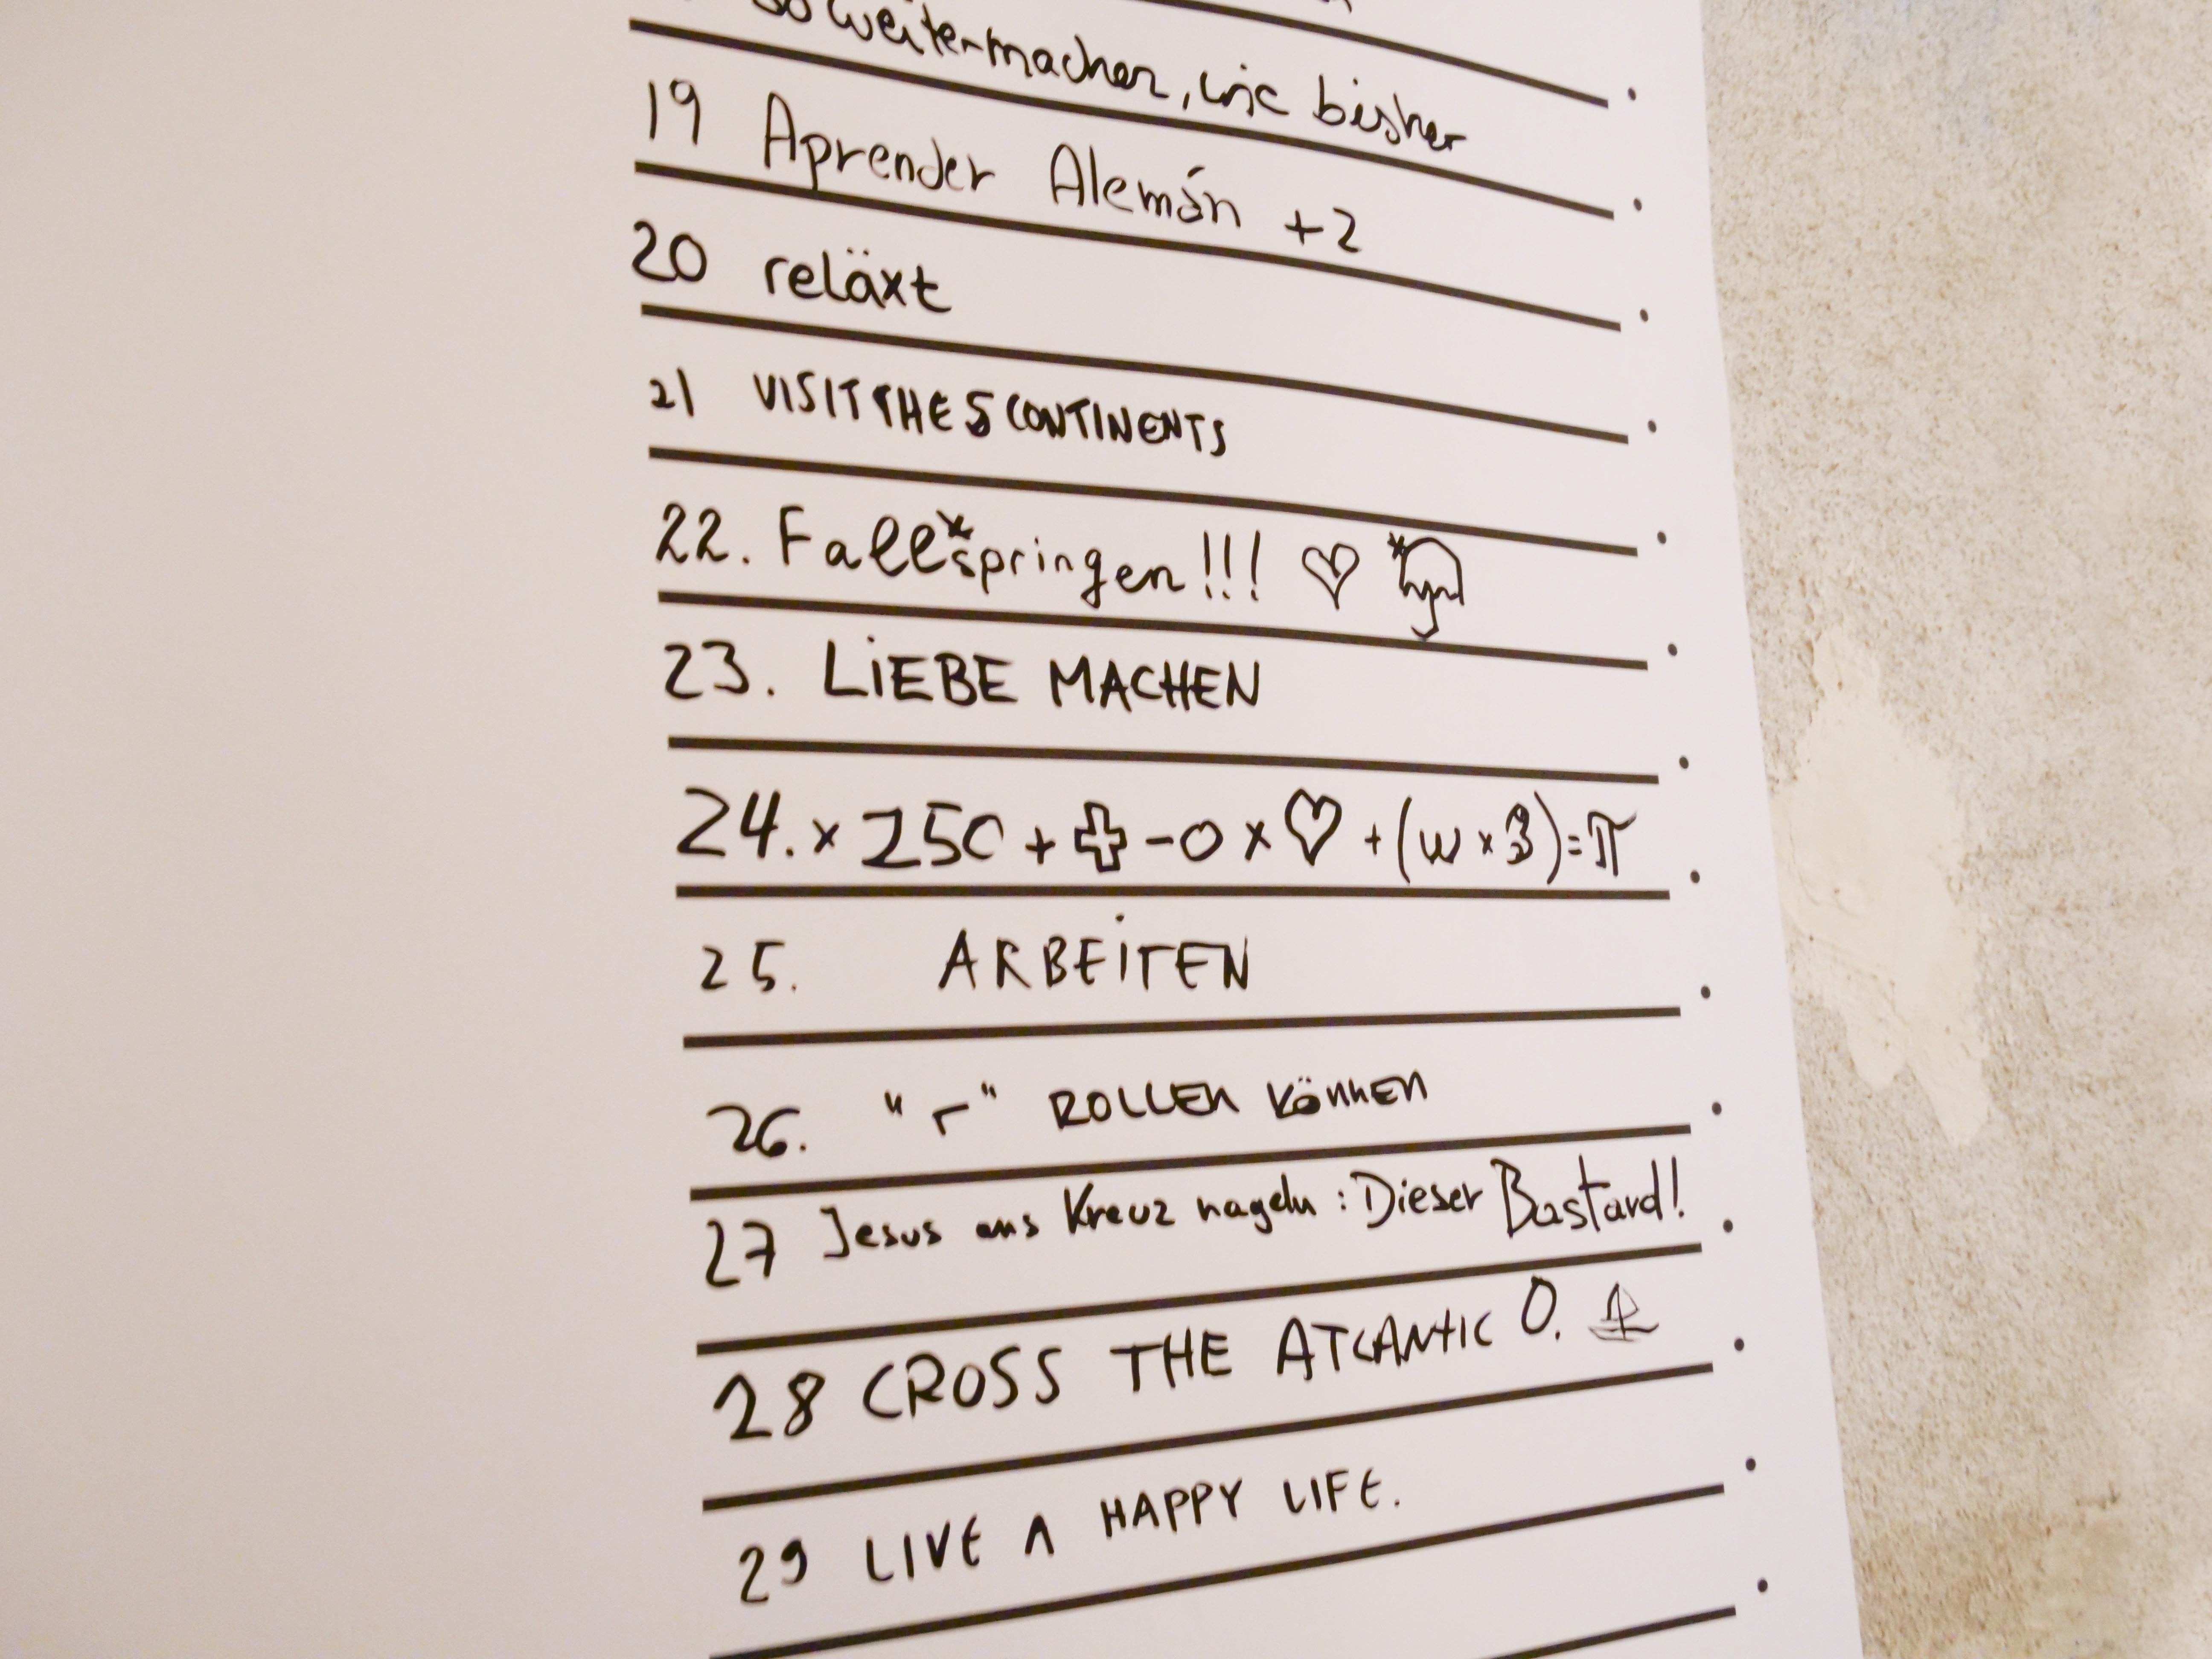 so weitermachen, wie bisher
19 Aprender Alemán +2
20 reläxt
21 VISIT THE 5 CONTINENTS
22. Fall*springen!!! ♡ *
23. LiEBE MACHEN
24. x 250 + ✚ - 0 x ♡ + (w x 3) = π
25. ARBEiTEN
26. "r" ROLLEN KöNNEN
27 Jesus ans Kreuz nageln: Dieser Bastard!
28 CROSS THE ATLANTIC O.
29 LIVE A HAPPY LIFE.